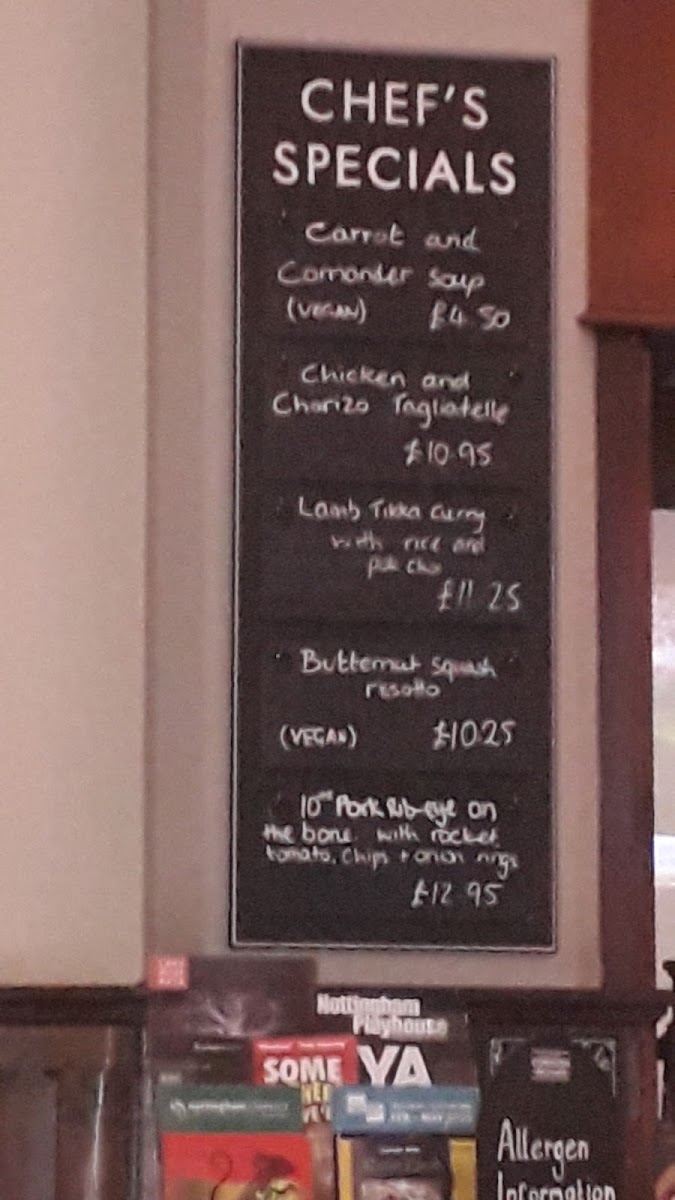 CHEF'S
SPECIALS
Carrot and
Coriander Soup
(VEGAN) £4.50
Chicken and
Chorizo Tagliatelle
£10.95
Lamb Tikka Curry
with rice and
£11.25
Butternut Squash
risotto
(VEGAN) £10.25
10oz Pork Rib-eye on
the bone. with rocket
tomato, chips + onion rings
£12.95
Nottingham
Playhouse
SOME
YA
Allergen
Information